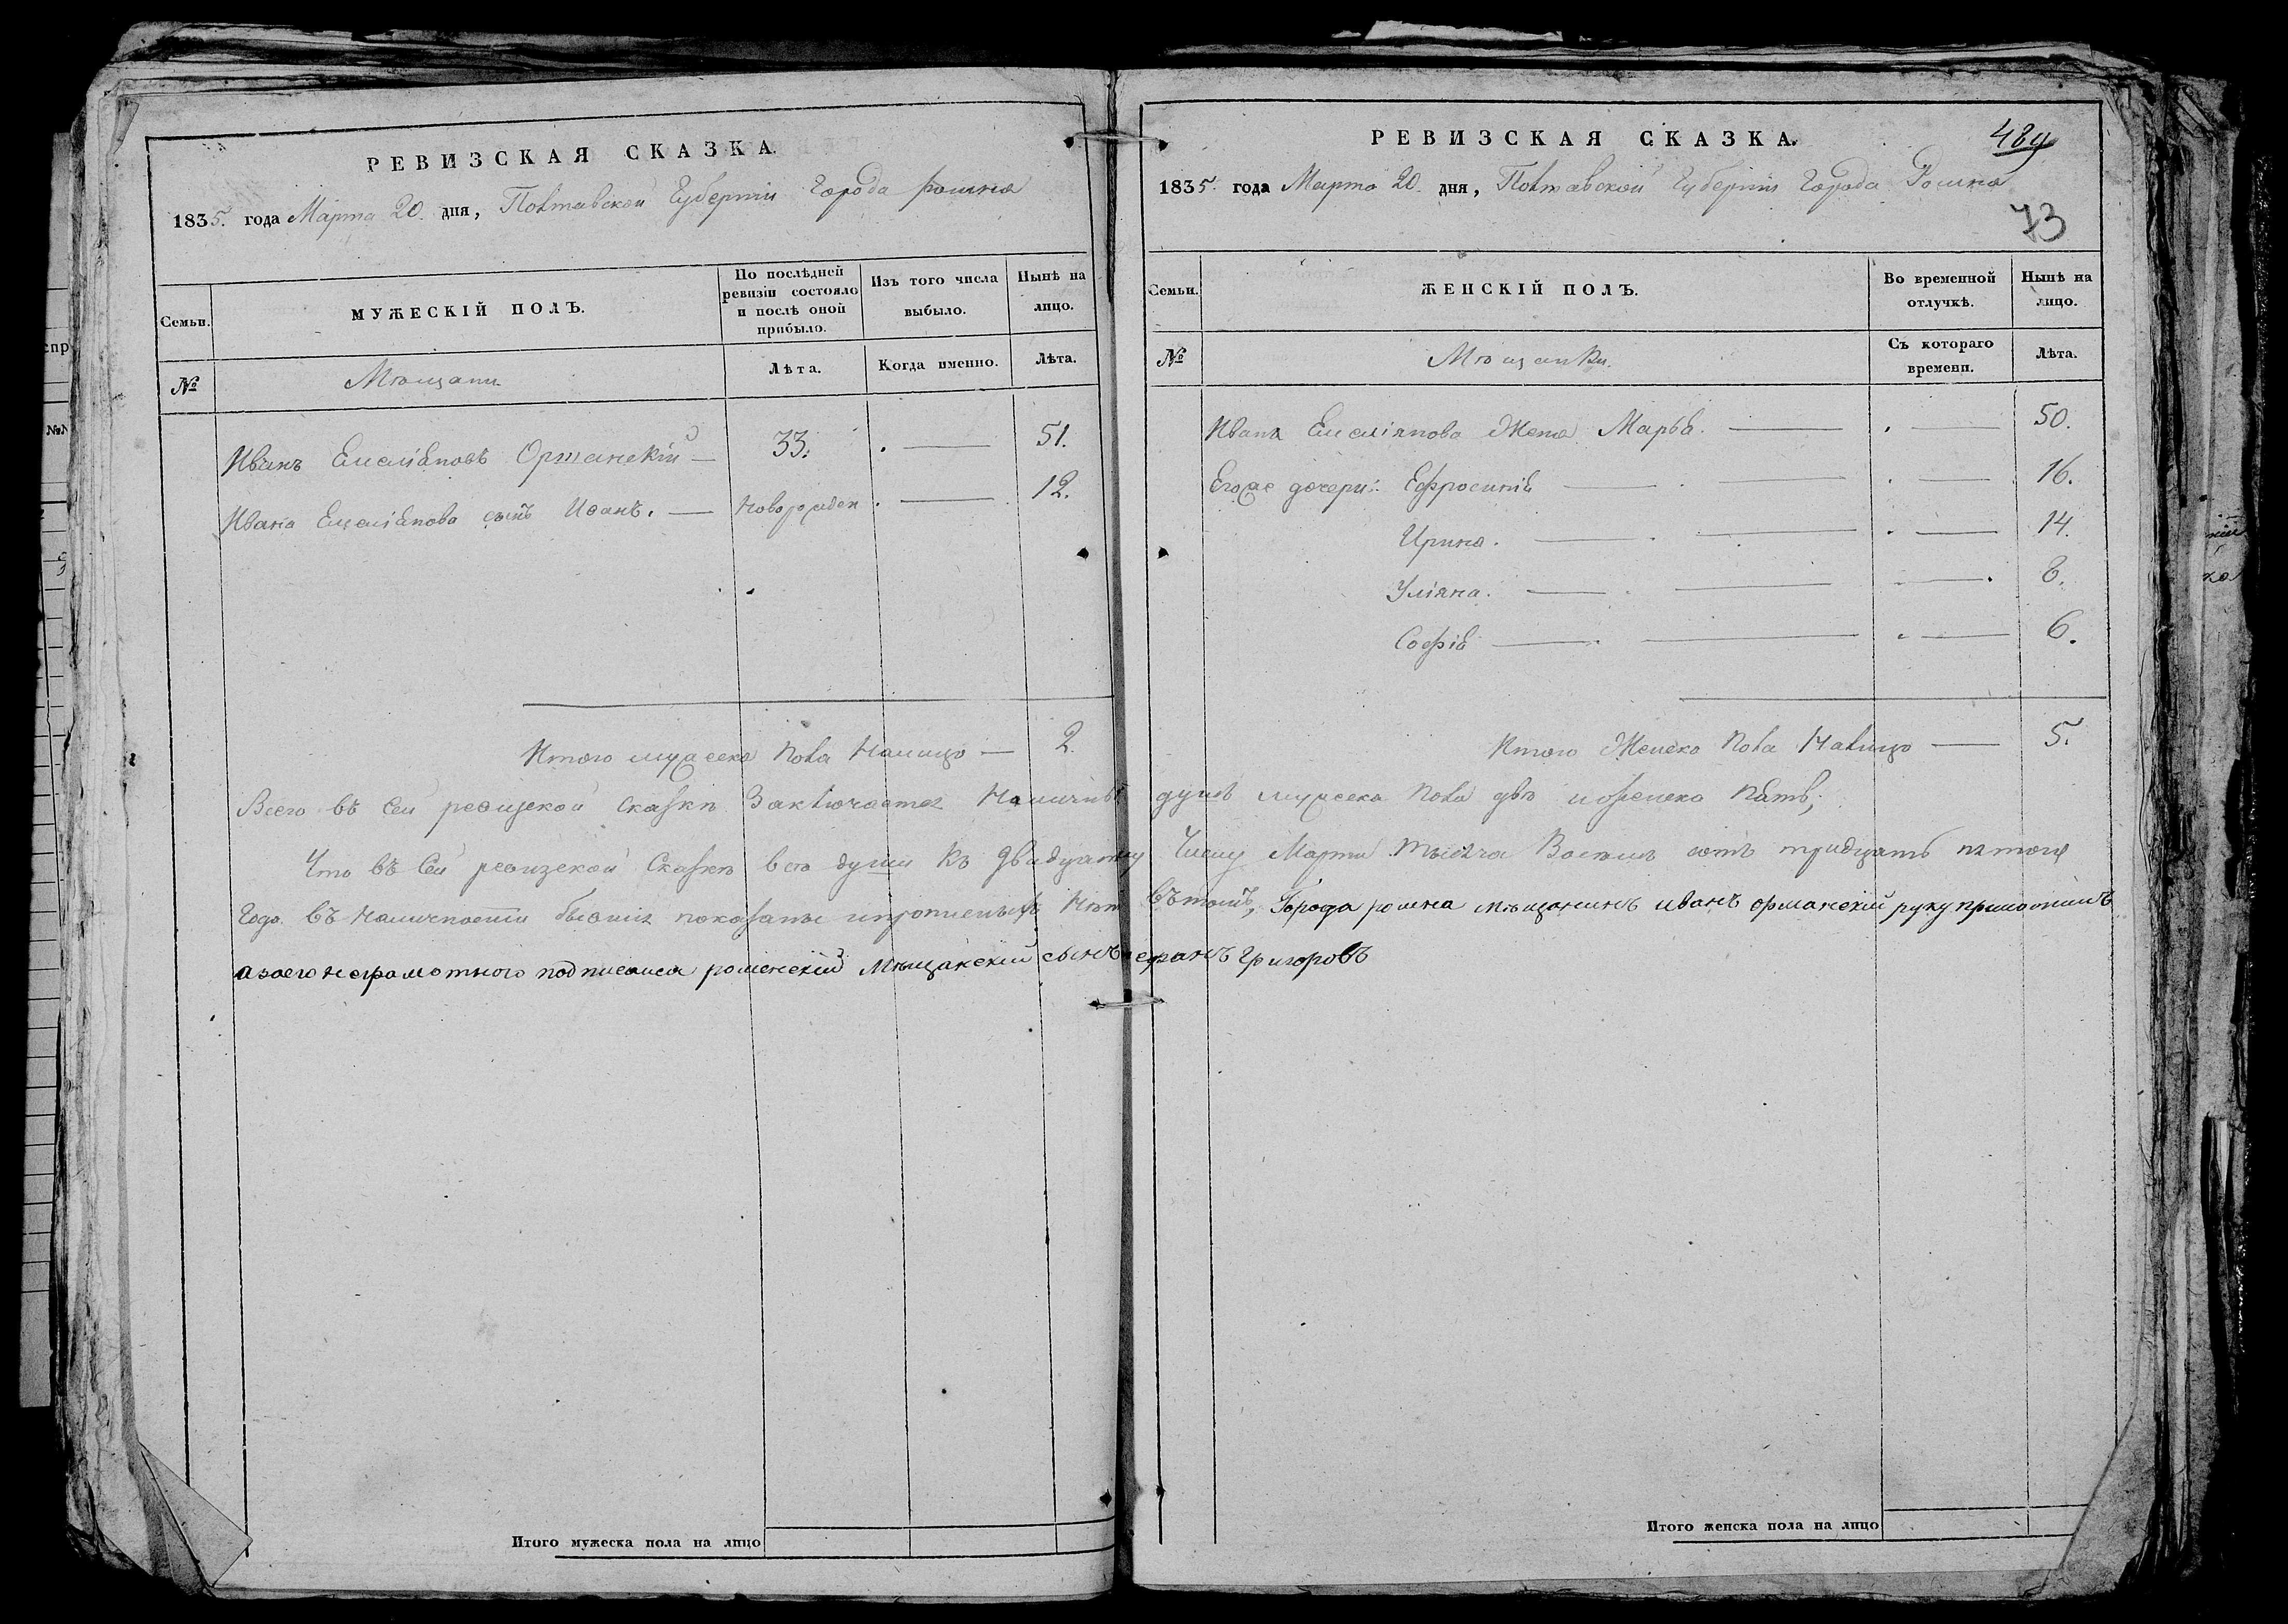 РЕВИЗСКАЯ СКАЗКА.
1835. года Марта 20. дня, Полтавской Губерніи Города Ромна
Семьи.
МУЖЕСКІЙ ПОЛЪ.
По послѣдней ревизіи состояло и послѣ оной прибыло.
Изъ того числа выбыло.
Нынѣ на лицо.
№
Мѣщани
Лѣта.
Когда именно.
Лѣта.
Иванъ Емеліяновъ Орманскій — 33. — 51.
Ивана Емеліянова сынъ Иванъ. — Новорожден — 12.
Итого мужеска пола налицо — 2.
РЕВИЗСКАЯ СКАЗКА.
489
1835. года Марта 20. дня, Полтавской Губерніи Города Ромна
73
Семьи.
ЖЕНСКІЙ ПОЛЪ.
Во временной отлучкѣ.
Нынѣ на лицо.
№
Мѣщанки.
Съ котораго времени.
Лѣта.
Ивана Емеліянова Жена Марья. — 50.
Егоже дочери: Ефросинія — 16.
Ирина. — 14.
Уліяна. — 8.
Софія — 6.
Итого Женска пола налицо — 5.
Всего въ Сей ревизской Сказкѣ Заключается Наличныхъ душъ мужеска пола двѣ и женска пять;
Что въ Сей ревизской Сказкѣ всѣ души Къ Двадцатому Числу Марта тысяча Восемь сотъ тридцать пятого
Года въ наличности бывшія показаны и прописныхъ нѣт въ томъ, Города ромна мѣщанинъ иванъ орманский руку приложилъ
а за его неграмотного подписался роменский Мѣщанский сынъ Григоровъ
Итого мужеска пола на лицо
Итого женска пола на лицо